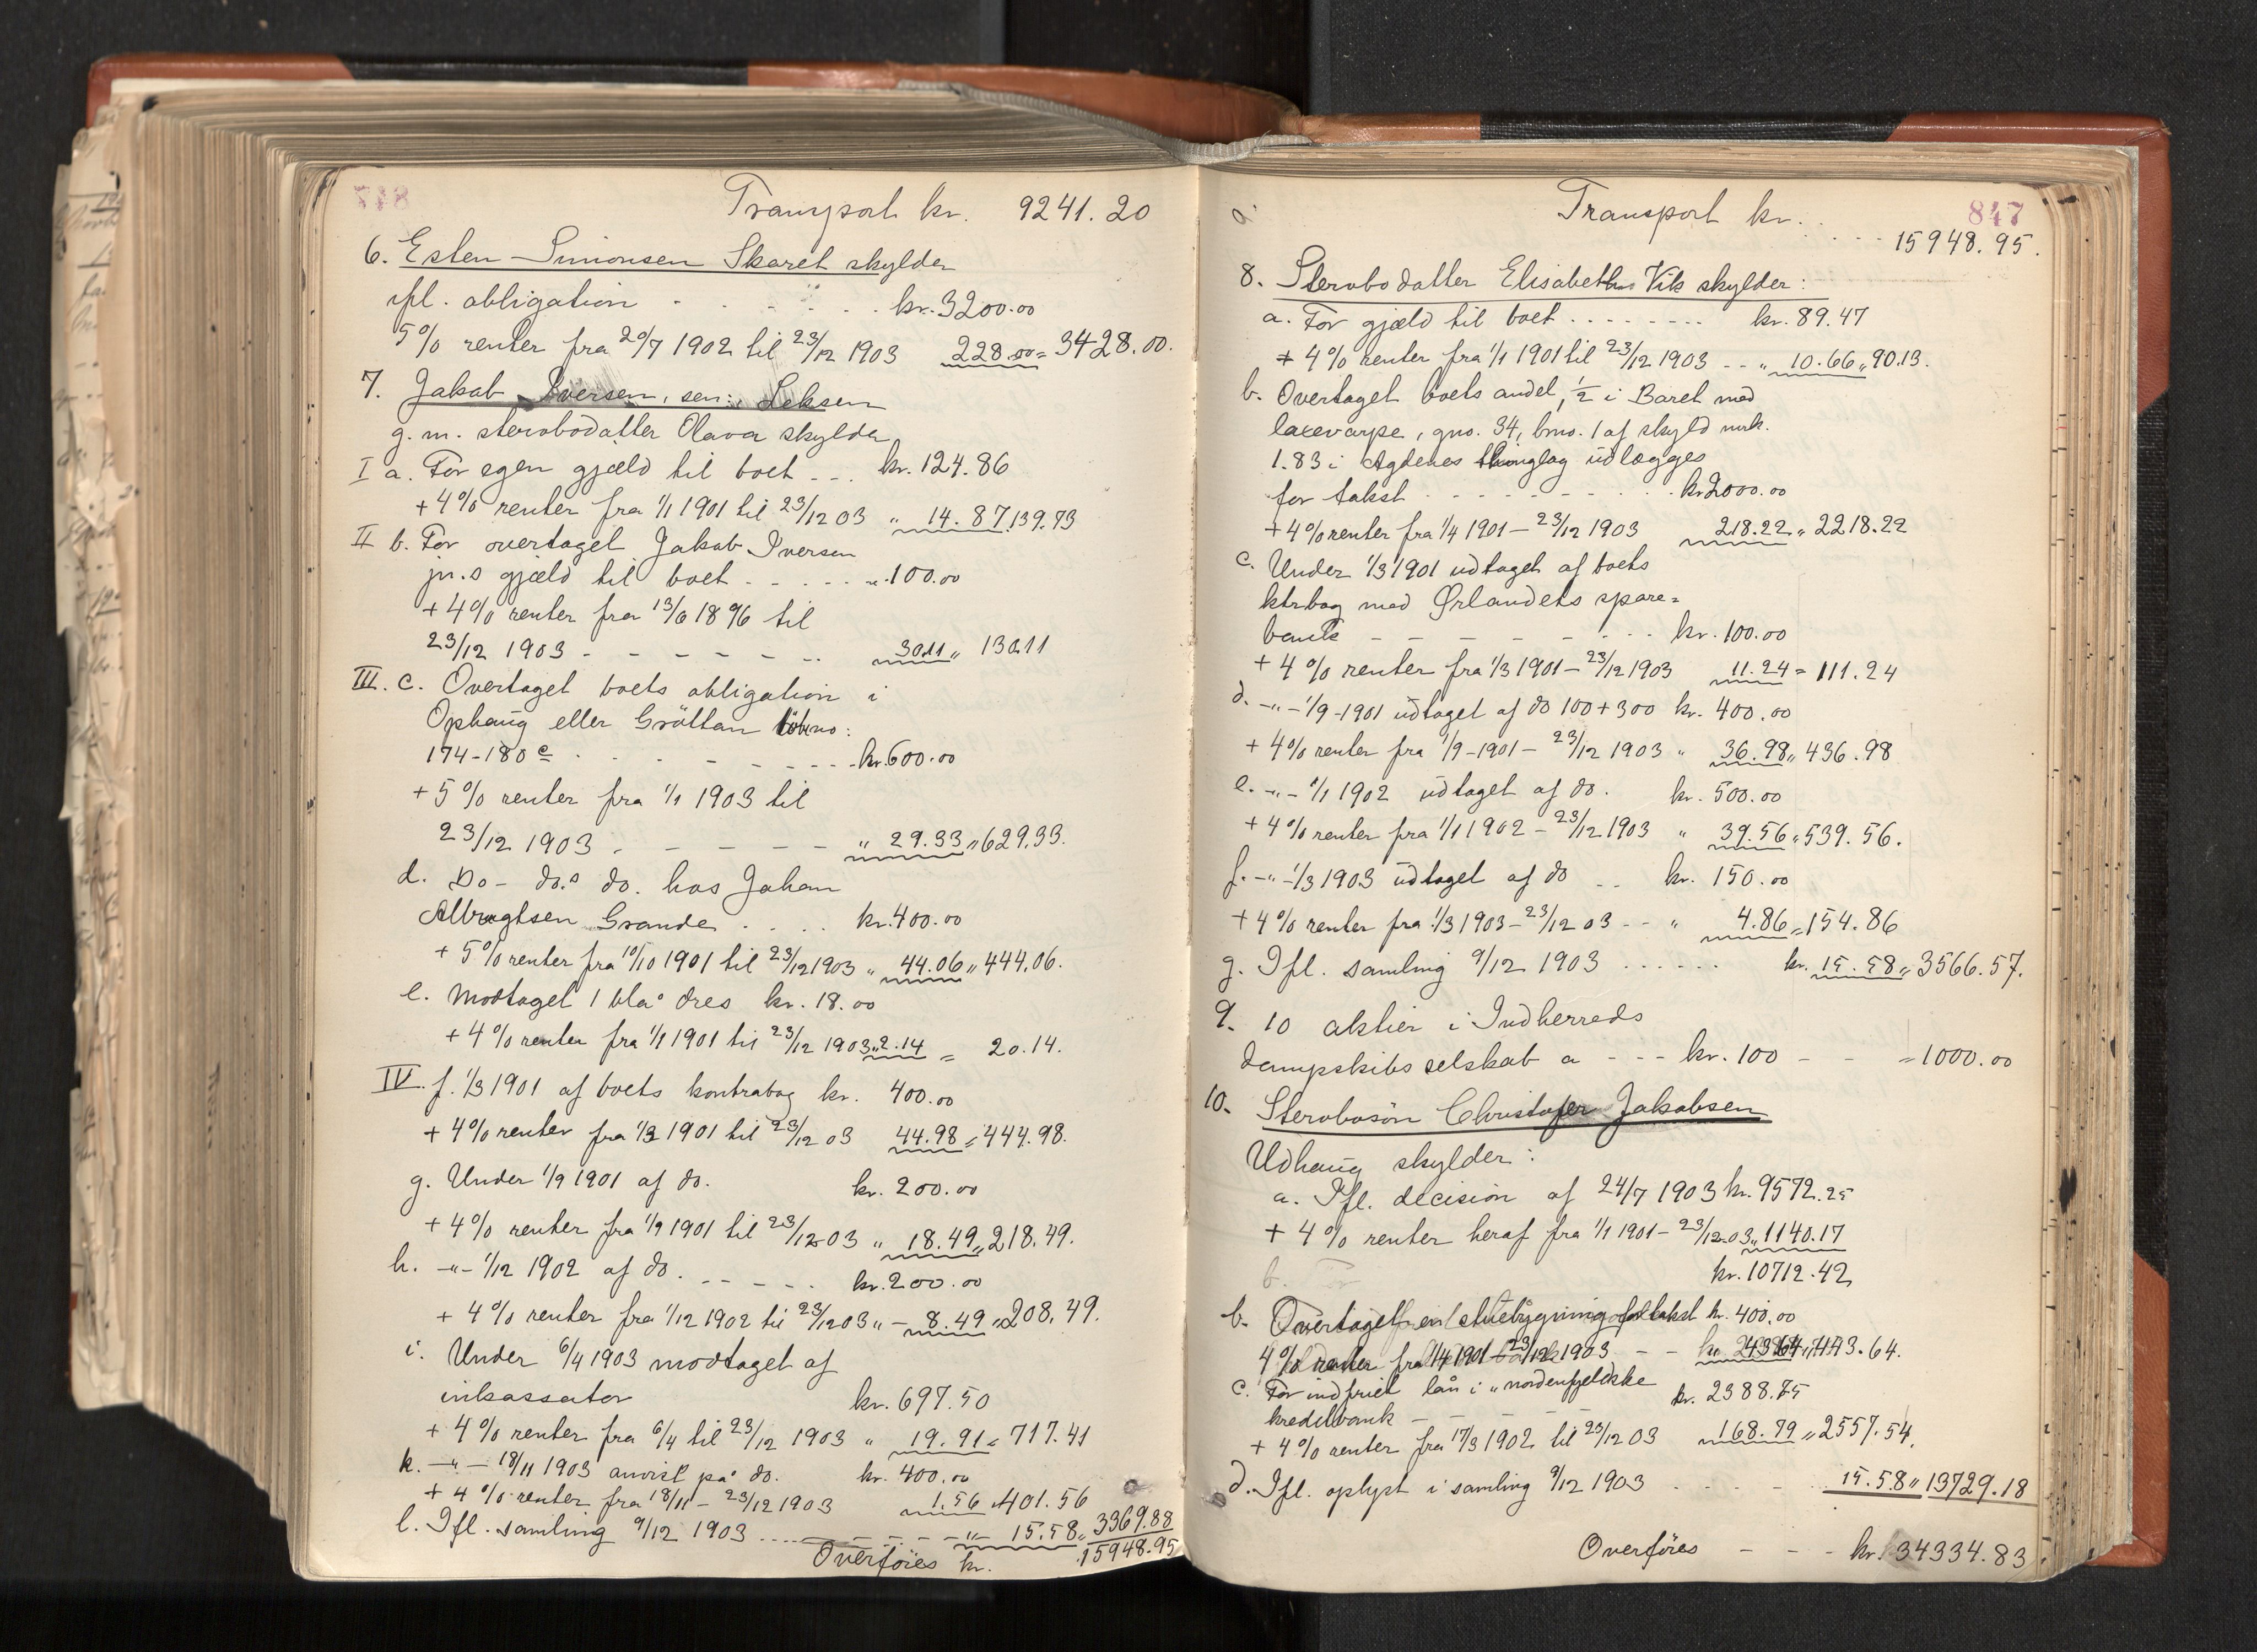 718
Transport kr. 9241.20
6. Esten Simonsen Skaret skylder
ifl. obligation - - - - - kr. 3200.00
5% renter fra 20/7 1902 til 23/12 1903 228.00 = 3428.00.
7. Jakob Iversen, sen: Leksen
g. m. sterobodatter Olava skylder
I a. For egen gjæld til boet - - . kr. 124.86
+ 4% renter fra 1/1 1901 til 23/12 03 " 14.87, 139.73
II b. For overtaget Jakob Iversen
jn.s gjæld til boet - - . - - - ". 100.00
+ 4% renter fra 13/6 1896 til
23/12 1903 - - - - - - .. 30.11 " 130.11
III. c. Overtaget boets obligation i
Ophaug eller Gröttan löbno:
174-180 c . - - - - - - kr. 600.00
+ 5% renter fra 1/1 1903 til
23/12 1903 . - - - - - " 29.33 " 629.33.
d. Do - do.s do. hos Johan
Albregtsen Grande . . . . kr. 400.00
+ 5% renter fra 10/10 1901 til 23/12 1903 " 44.06 " 444.06.
e. Modtaget 1 blå dres kr. 18.00
+ 4% renter fra 1/1 1901 til 23/12 1903 " 2.14 = 20.14.
IV. f. 1/3 1901 af boets kontrabog kr. 400.00
+ 4% renter fra 1/3 1901 til 23/12 03 44.98 = 444.98.
g. Under 1/9 1901 af do. kr. 200.00
+ 4% renter fra 1/9 1901 til 23/12 03 " 18.49 " 218.49.
h. -"- 1/12 1902 af do. - - - - - kr. 200.00
+ 4% renter fra 1/12 1902 til 23/12 03 " - 8.49 " 208.49.
i. Under 6/4 1903 modtaget af
inkassator kr. 697.50
+ 4% renter fra 6/4 til 23/12 1903 " 19.91 = 717.41
k. -"- 18/11 1903 anvist på do. kr. 400.00
+ 4% renter fra 18/11 - 23/12 1903 1.56 " 401.56
l. Ifl. samling 9/12 1903 ... - - - - - " - 15.58 " 3369.88
Overföres kr. 15948.95
847
Transport kr. . . - - - 15948.95.
8. Sterobodatter Elisabeth Vik skylder:
a. For gjæld til boet . . - - - - . . . kr. 89.47
+ 4% renter fra 1/1 1901 til 23/12 1903 - - " 10.66 " 90.13.
b. Overtaget boets andel, 1/2 i Baret med
laxevarpe, gno. 34, bno. 1 af skyld mrk.
1.83 i Agdenes thinglag udlægges
for takst - - - - - - - - . . kr 2000.00
+ 4% renter fra 1/4 1901 - 23/12 1903 218.22 " 2218.22
c. Under 1/3 1901 udtaget af boets
ktrbog med Ørlandets spare=
bank - - - - - - - . . . kr. 100.00
+ 4% renter fra 1/3 1901 - 23/12 1903 11.24 = 111.24
d. -"- 1/9 - 1901 udtaget af do 100 + 300 kr. 400.00
+ 4% renter fra 1/9 - 1901 - 23/12 1903 " 36.98 " 436.98
e. -"- 1/1 1902 udtaget af do. kr. 500.00
+ 4% renter fra 1/1 1902 - 23/12 1903 " 39.56 " 539.56.
f. -"- 1/3 1903 udtaget af do . . kr. 150.00
+ 4% renter fra 1/3 1903 - 23/12 03 - - " 4.86 = 154.86
g. Ifl. samling 9/12 1903 . . . . . . kr. 15.58 " 3566.57.
9. 10 aktier i Indherreds
dampskibsselskab a - - - kr. 100 - - = 1000.00
10. Sterobosön Christofer Jakobsen
Udhaug skylder:
a. Ifl. decision af 24/7 1903 kr. 9572.25
+ 4% renter heraf fra 1/1 1901 - 23/12 03 " 1140.17
b. For kr. 10712.42
b. Overtaget en stuebygning for takst kr. 400.00
4% renter fra 1/4 1901 - 23/12 1903 - - 43.64 " 443.64.
c. For indfriet lån i "nordenfjeldske
kreditbank - - - - - kr. 2388.75
+ 4% renter fra 17/3 1902 til 23/12 03 168.79 " 2557.54.
d. Ifl. oplyst i samling 9/12 1903 . - - - 15.58 " 13729.18
Overföres - - - kr. 34334.83